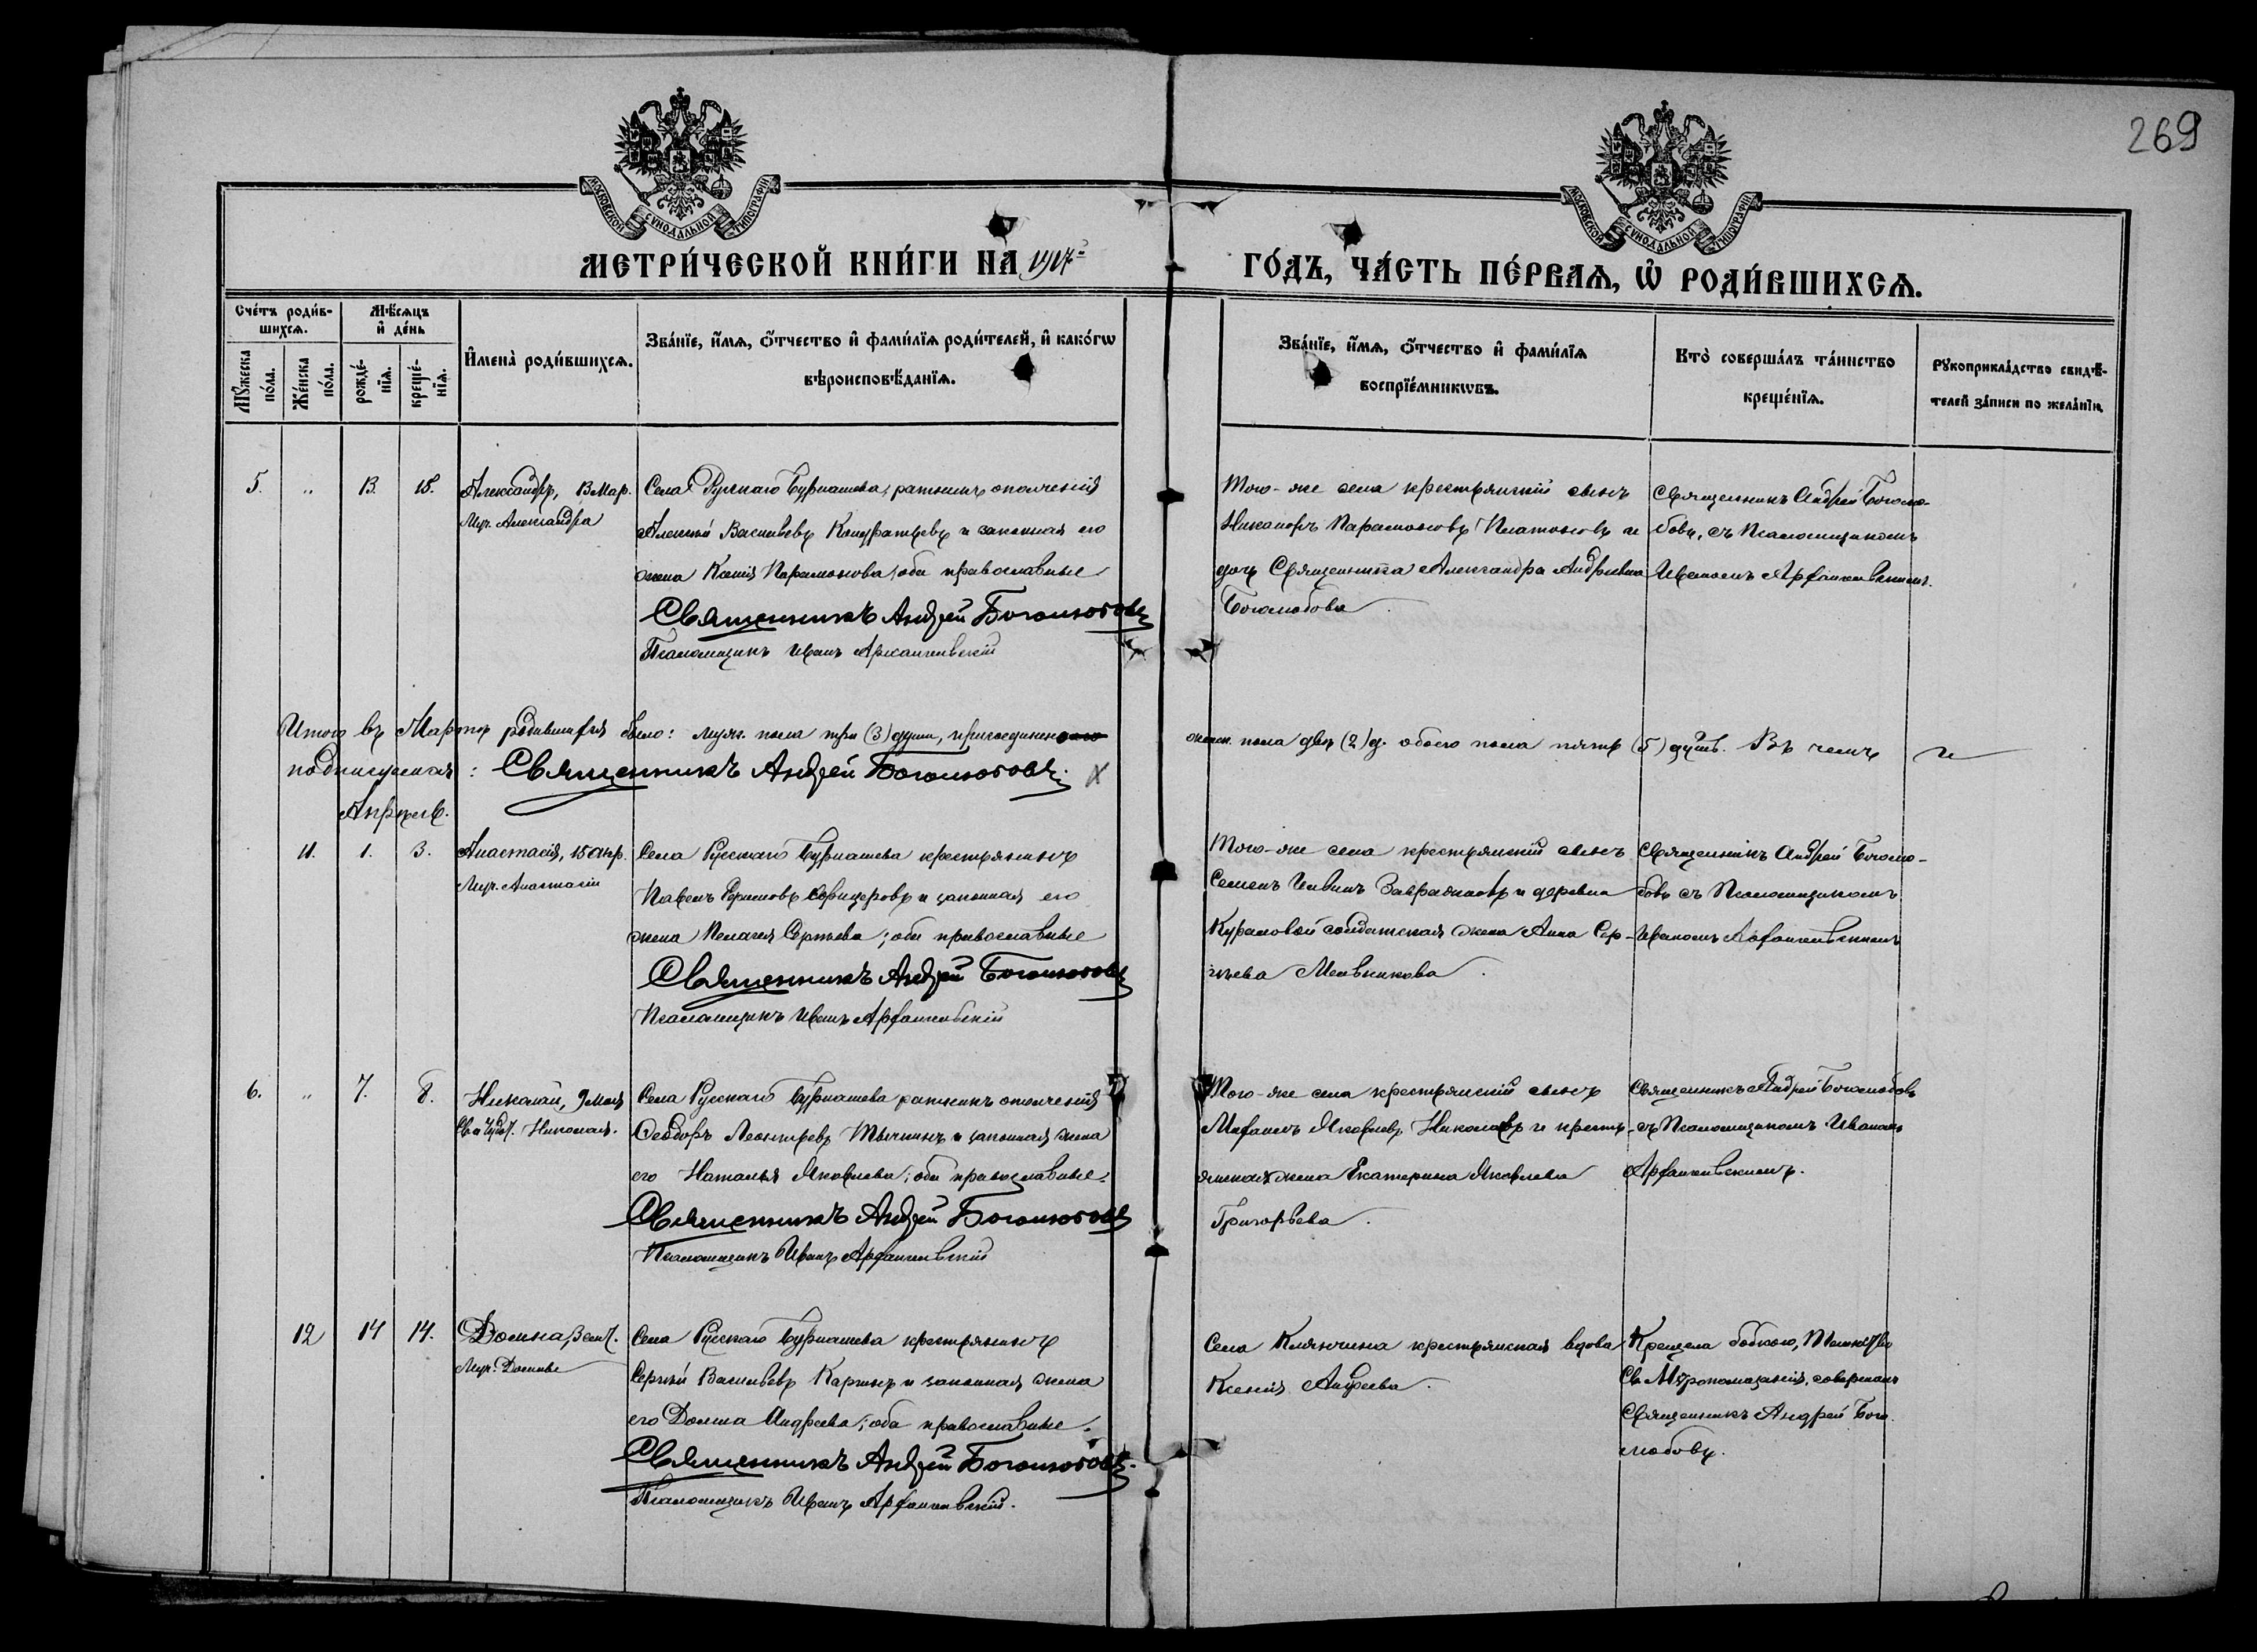 269
МОСКОВСКОЙ СѴНОДАЛЬНОЙ ТИПОГРАФІИ
МОСКОВСКОЙ СѴНОДАЛЬНОЙ ТИПОГРАФІИ
МЕТРИ́ЧЕСКОЙ КНИ́ГИ НА 1917 ГО́ДЪ, ЧА́СТЬ ПЕ́РВАѦ, Ѡ҆ РОДИ́ВШИХСѦ.
Сче́тъ роди́в-
шихсѧ.
Мѣ́сѧцъ
и҆ де́нь
Мꙋ́жеска
по́ла.
Же́нска
по́ла.
рожде́-
нїѧ.
креще́-
нїѧ.
И҆мена̀ роди́вшихсѧ.
Зва́нїе, и҆́мѧ, ѻ҆́тчество и҆ фами́лїѧ роди́телей, и҆ како́гѡ
вѣроисповѣ́данїѧ.
Зва́нїе, и҆́мѧ, ѻ҆́тчество и҆ фами́лїѧ
воспрїе́мникѡвъ.
Кто̀ соверша́лъ та́инство
креще́нїѧ.
Рꙋкоприкла́дство свидѣ́-
телей за́писи по жела́нїю.
5. " 13. 18.
Александръ,
Муч. Александра
Села Русскаго Бурнашева, ратникъ ополченія
Алексѣй Васильевъ Кондратьевъ и законная его
жена Ксенія Парамонова; оба православные
Священникъ Андрей Боголюбовъ
Псаломщикъ Иванъ Архангельскій
Того-же села крестьянскій сынъ
Никаноръ Парамоновъ Платоновъ и
дочь Священника Александра Андреевна
Боголюбова.
Священникъ Андрей Боголю-
бовъ, съ Псаломщикомъ
Иваномъ Архангельскимъ.
Итого въ Мартѣ родившихся было: муж. пола три (3) души,
женск. пола двѣ (2) д. обоего пола пять (5) душъ. Въ чемъ и
подписуемся: Священникъ Андрей Боголюбовъ.
Апрѣль.
11. 1. 3.
Анастасія, 15 апр.
Муч. Анастасіи
Села Русскаго Бурнашева крестьянинъ
Павелъ и законная его
жена Пелагея Сергѣева; оба православные
Священникъ Андрей Боголюбовъ
Псаломщикъ Иванъ Архангельскій
Того-же села крестьянскій сынъ
Семенъ и деревни
Кураловой солдатская жена Анна Сер-
гѣева Мельникова.
Священникъ Андрей Боголю-
бовъ съ Псаломщикомъ
Иваномъ Архангельскимъ
6. " 7. 8.
Николай, 9 Мая
Св. и Чудот. Николая.
Села Русскаго Бурнашева ратникъ ополченія
Ѳеодоръ Леонтьевъ и законная жена
его Наталья Яковлева; оба православные.
Священникъ Андрей Боголюбовъ
Псаломщикъ Иванъ Архангельскій
Того-же села крестьянскій сынъ
Михаилъ Яковлевъ Николаевъ и кресть-
янская жена Екатерина Яковлева
Григорьева.
Священникъ Андрей Боголюбовъ
съ Псаломщикомъ Иваномъ
Архангельскимъ.
12 14 14.
Домна,
Муч. Домны
Села Русскаго Бурнашева крестьянинъ
Сергѣй Васильевъ и законная жена
его Домна Андреева; оба православные.
Священникъ Андрей Боголюбовъ.
Псаломщикъ Иванъ Архангельскій.
Села Клянчина крестьянская вдова
Ксенія Андреева.
Крещена бабкою,
Св. Мѵропомазанія, совершалъ
Священникъ Андрей Бого-
любовъ.